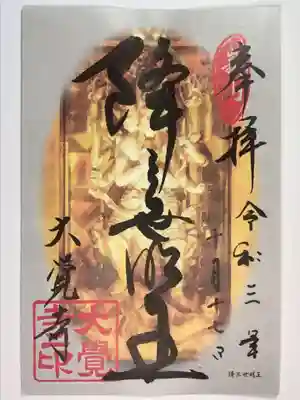 奉拝
令和三年
十月十七日
降三世明王
大覚寺
大覺
寺印
降三世明王